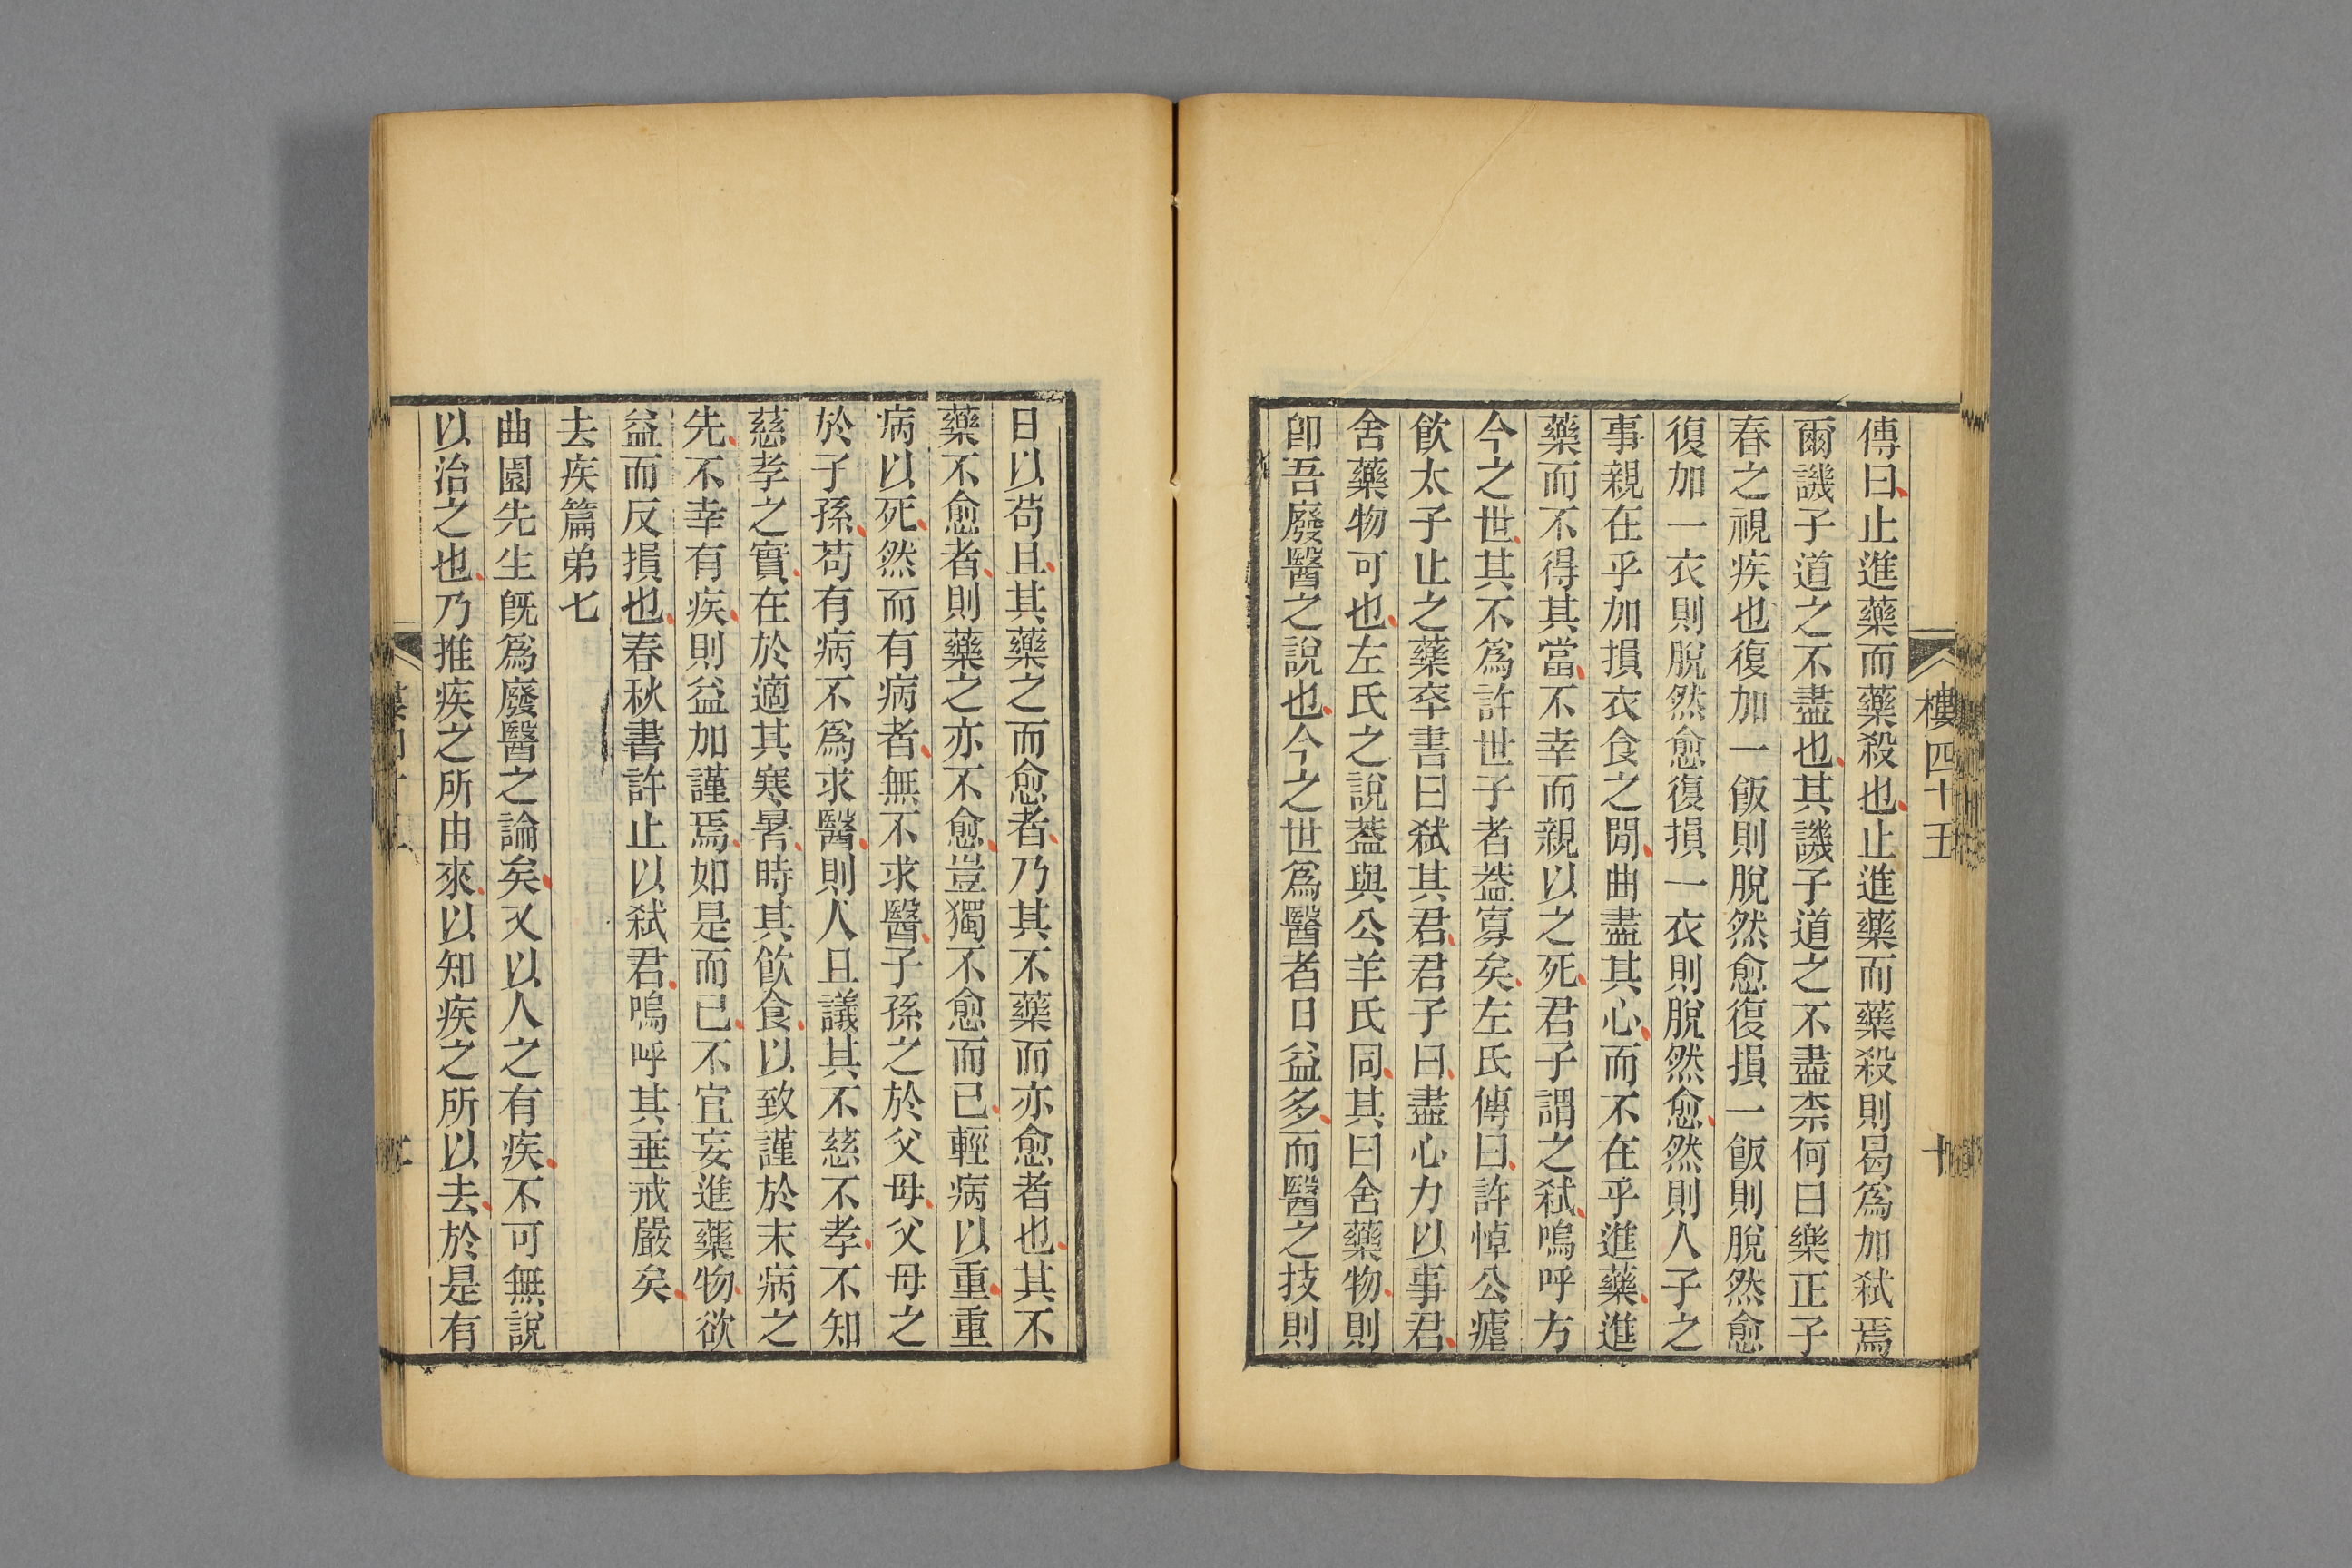 樓四十五
十
傳曰止進藥而藥殺也止進藥而藥殺則曷爲加弑焉
爾譏子道之不盡也其譏子道之不盡柰何曰樂正子
春之視疾也復加一飯則脫然愈復損一飯則脫然愈
復加一衣則脫然愈復損一衣則脫然愈然則人子之
事親在乎加損衣食之閒曲盡其心而不在乎進藥進
藥而不得其當不幸而親以之死君子謂之弑嗚呼方
今之世其不爲許世子者葢寡矣左氏傳曰許悼公瘧
飮太子止之藥卒書曰弑其君君子曰盡心力以事君
舍藥物可也左氏之說葢與公羊氏同其曰舍藥物則
卽吾廢醫之說也今之世爲醫者日益多而醫之技則
日以苟且其藥之而愈者乃其不藥而亦愈者也其不
藥不愈者則藥之亦不愈豈獨不愈而已輕病以重重
病以死然而有病者無不求醫子孫之於父母父母之
於子孫苟有病不爲求醫則人且議其不慈不孝不知
慈孝之實在於適其寒暑時其飮食以致謹於末病之
先不幸有疾則益加謹焉如是而已不宜妄進藥物欲
益而反損也春秋書許止以弑君嗚呼其垂戒嚴矣
去疾篇弟七
曲園先生旣爲廢醫之論矣又以人之有疾不可無說
以治之也乃推疾之所由來以知疾之所以去於是有